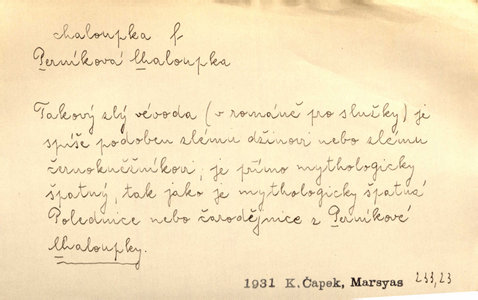 chaloupka f
Perníková Chaloupka
Takový zlý vévoda (v románě pro služky) je
spíše podoben zlému džinovi nebo zlému
černokněžníkovi; je přímo mythologicky
špatný, tak jako je mythologicky špatná
Polednice nebo čarodějnice z Perníkové
Chaloupky.
1931 K. Čapek, Marsyas 233,23